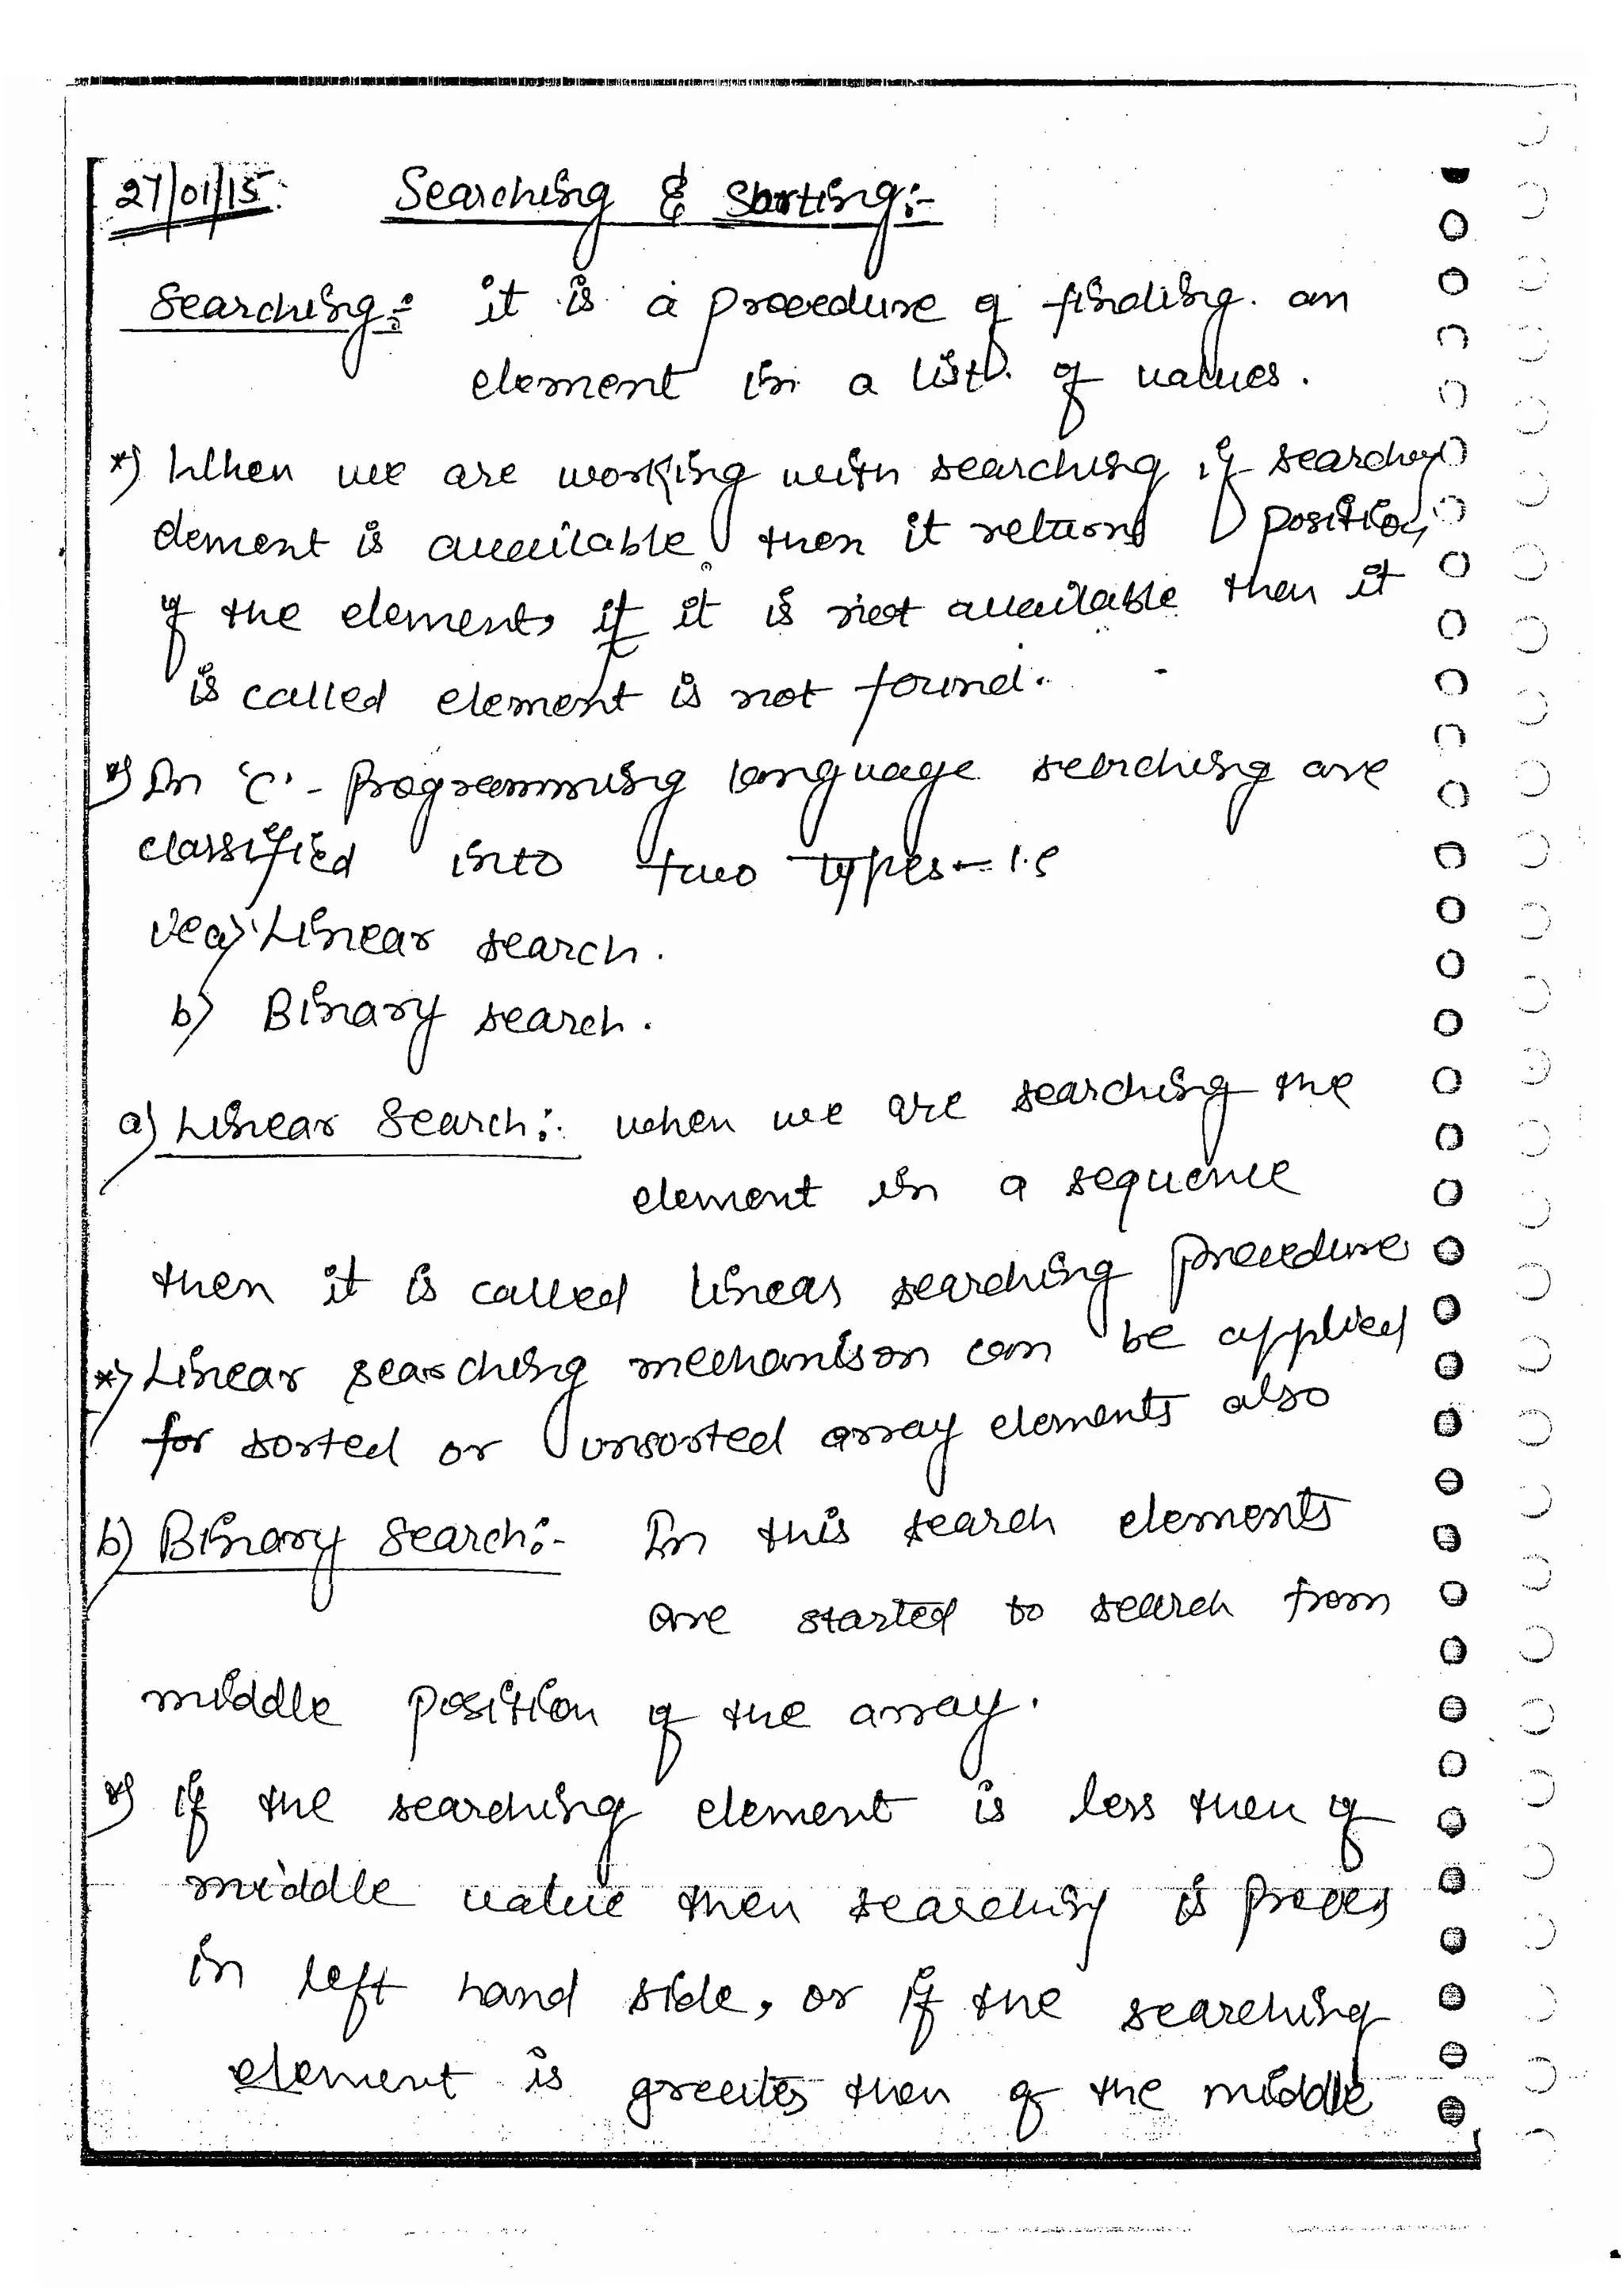 27/01/15. Searching & Sorting:-
Searching:- it is a procedure of finding an
element in a list of values.
*) When we are working with searching if searching
element is available then it returns position
of the element, if it is not available then it
is called element is not found.
*) In 'C'- Programming language searching are
classified into two types- i.e
a) Linear search.
b) Binary search.
a) Linear Search:- when we are searching the
element in a sequence
then it is called linear searching procedure
*) Linear searching mechanism can be applied
for sorted or unsorted array elements also
b) Binary Search:- In this search elements
are started to search from
middle position of the array.
*) if the searching element is less then of
middle value then searching is process
in left hand side, or if the searching
element is greater then of the middle